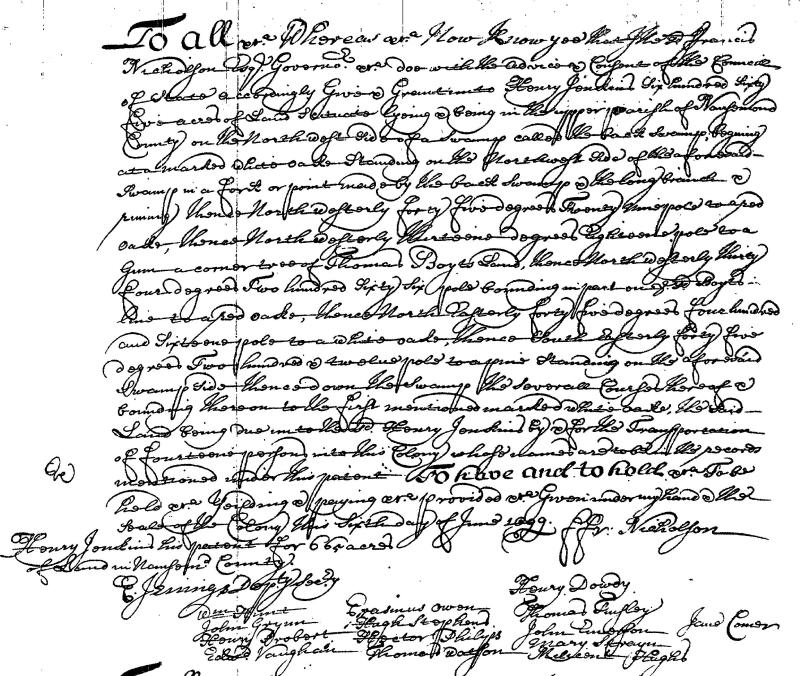 To all &c. Whereas &c. Now Know yee that I the sd. Francis
Nicholson Esqr. Governr. &c. doe with the advice & Consent of the Council
of State accordingly Give & Grant unto Henry Jenkins Six hundred Sixty
five acres of Land Scituate lying & being in the upper parish of Nansemond
County on the North west side of a Swamp called the back Swamp, begining
at a marked white oake Standing on the Northwest side of the aforesaid
Swamp in a fork or point made by the back Swamp & the long branch &
runing thence North westerly forty five degrees Twenty nine pole to a red
oake, thence North westerly thirteene degrees Eighteene pole to a
Gum a corner tree of Thomas Boyts Land, thence North westerly thirty
four degrees Two hundred Sixty Six pole bounding in part on sd. Boyts
line to a red oake, thence North Easterly forty five degrees four hundred
and Sixteene pole to a white oake, thence South Easterly forty five
degrees Two hundred & twelve pole to a pine Standing on the aforesaid
Swamp Side thence down the Swamp the severall Courses thereof &
bounding thereon to the first mentioned marked white oake, the said
Land being due unto the sd. Henry Jenkins by & for the Transportation
of fourteene persons into this Colony whose names are to be in the records
mentioned under this patent To have and to hold &c. To be
held &c. Yeilding & paying &c. provided &c. Given under my hand & the
Seale of the Colony this Sixth day of June 1699. ffr. Nicholson
Henry Jenkins his patent for 665 acres
of Land in Nansemd. County.
E. Jenings Depty Secry
Henry Dowdy
Wm Hunt Erasmus Owen Thomas
John Gwynn Hugh Stephens John Emerson Jane Comer
Henry Probert Hector Philips Mary
Edwd Vaughan Thomas Watson Hughs